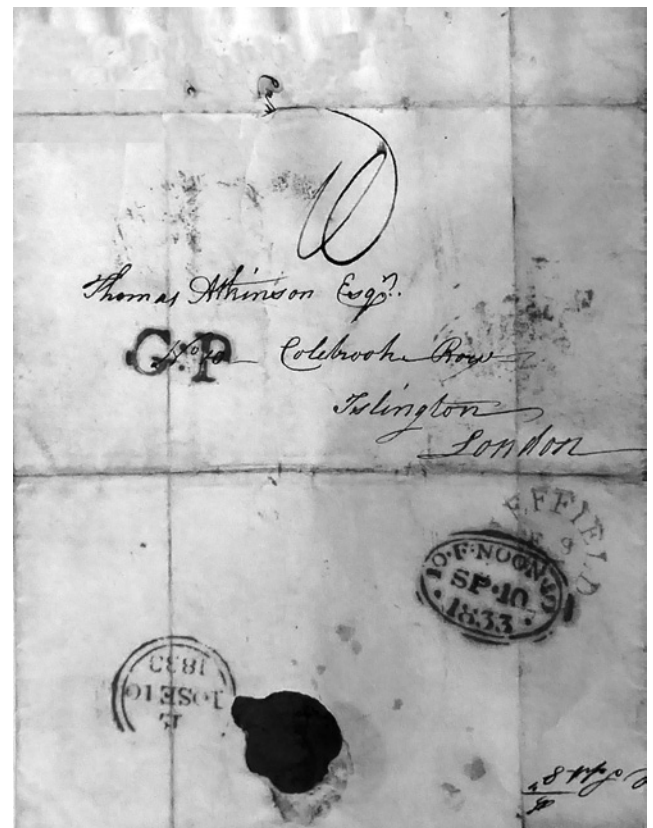 10
Thomas Atkinson Esqr.
G.P
No 10 Colebrook Row
Islington
London
EFFIELD
10·F·NOON·10
SP·10
1833
1833
10SE10